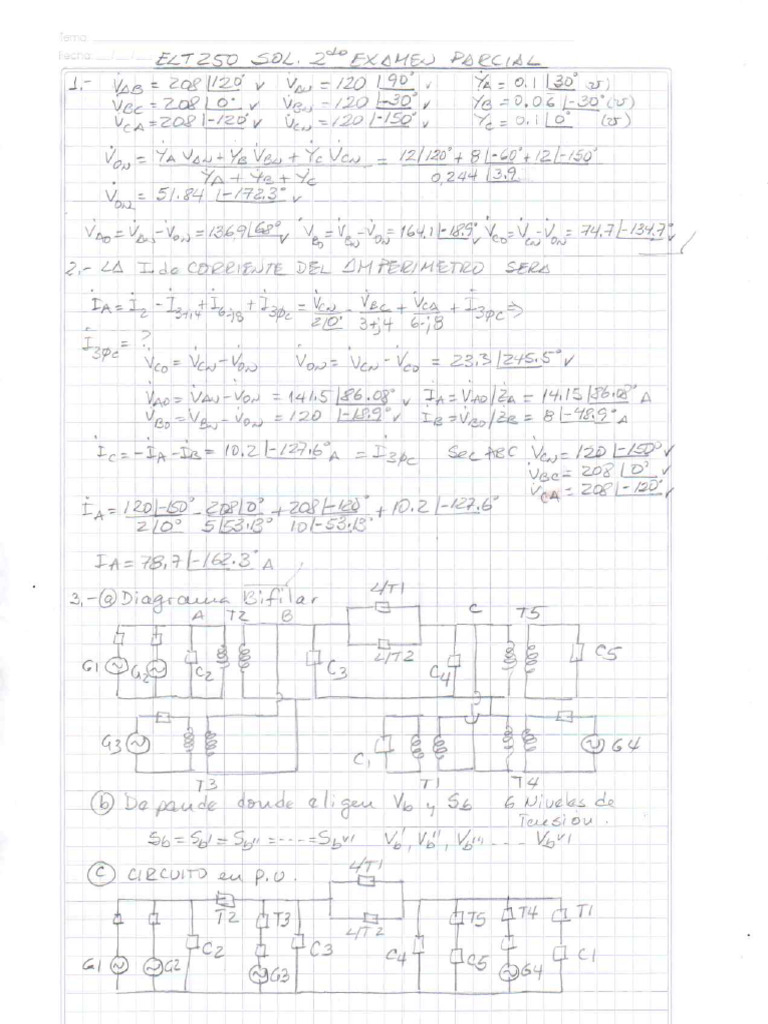 Tema
Fecha
ELT250 SOL. 2do EXAMEN PARCIAL
1.- V̇AB = 208∠120° V V̇AN = 120∠90° V ẎA = 0.1∠30° (℧)
V̇BC = 208∠0° V V̇BN = 120∠-30° V ẎB = 0.06∠-30° (℧)
V̇CA = 208∠-120° V V̇CN = 120∠-150° V ẎC = 0.1∠0° (℧)
V̇ON = (ẎA V̇AN + ẎB V̇BN + ẎC V̇CN)/(ẎA + ẎB + ẎC) = (12∠120° + 8∠-60° + 12∠-150°)/(0,244∠3.9)
V̇ON = 51.84∠-172.3° V
V̇AO = V̇AN - V̇ON = 136.9∠68° V V̇BO = V̇BN - V̇ON = 164.1∠-18.9° V V̇CO = V̇CN - V̇ON = 74.7∠-134.7° V
2.- LA I de CORRIENTE DEL AMPERIMETRO SERA
İA = İ2 - İ3+j4 + İ6-j8 + İ3φC = V̇CN/2∠0° - V̇BC/3+j4 + V̇CA/6-j8 + İ3φC ⇒
İ3φC = ?
V̇CO = V̇CN - V̇ON V̇ON = V̇CN - V̇CO = 23.3∠245.5° V
V̇AO = V̇AN - V̇ON = 141.5∠86.08° V İA = V̇AO/ZA = 14.15∠86.08° A
V̇BO = V̇BN - V̇ON = 120∠-18.9° V İB = V̇BO/ZB = 8∠-48.9° A
İC = -İA - İB = 10.2∠-127.6° A = İ3φC Sec ABC V̇CN = 120∠-150° V
V̇BC = 208∠0° V
V̇CA = 208∠-120° V
İA = 120∠-150°/2∠0° - 208∠0°/5∠53.13° + 208∠-120°/10∠-53.13° + 10.2∠-127.6°
İA = 78,7∠-162.3° A
3.- (a) Diagrama Bifilar
L/T1
A T2 B C T5
L/T2
G1 G2 C2 C3 C4 C5
G3 C1 G4
T3 T1 T4
(b) Depende donde eligen Vb y Sb 6 Niveles de
Tensión.
Sb = Sb' = Sb'' = ---- = Sbvı Vb', Vb'', Vb''' .... Vbvı
(c) CIRCUITO en P.U.
L/T1
T2 T3 L/T2 T5 T4 T1
G1 G2 C2 G3 C3 C4 C5 G4 C1